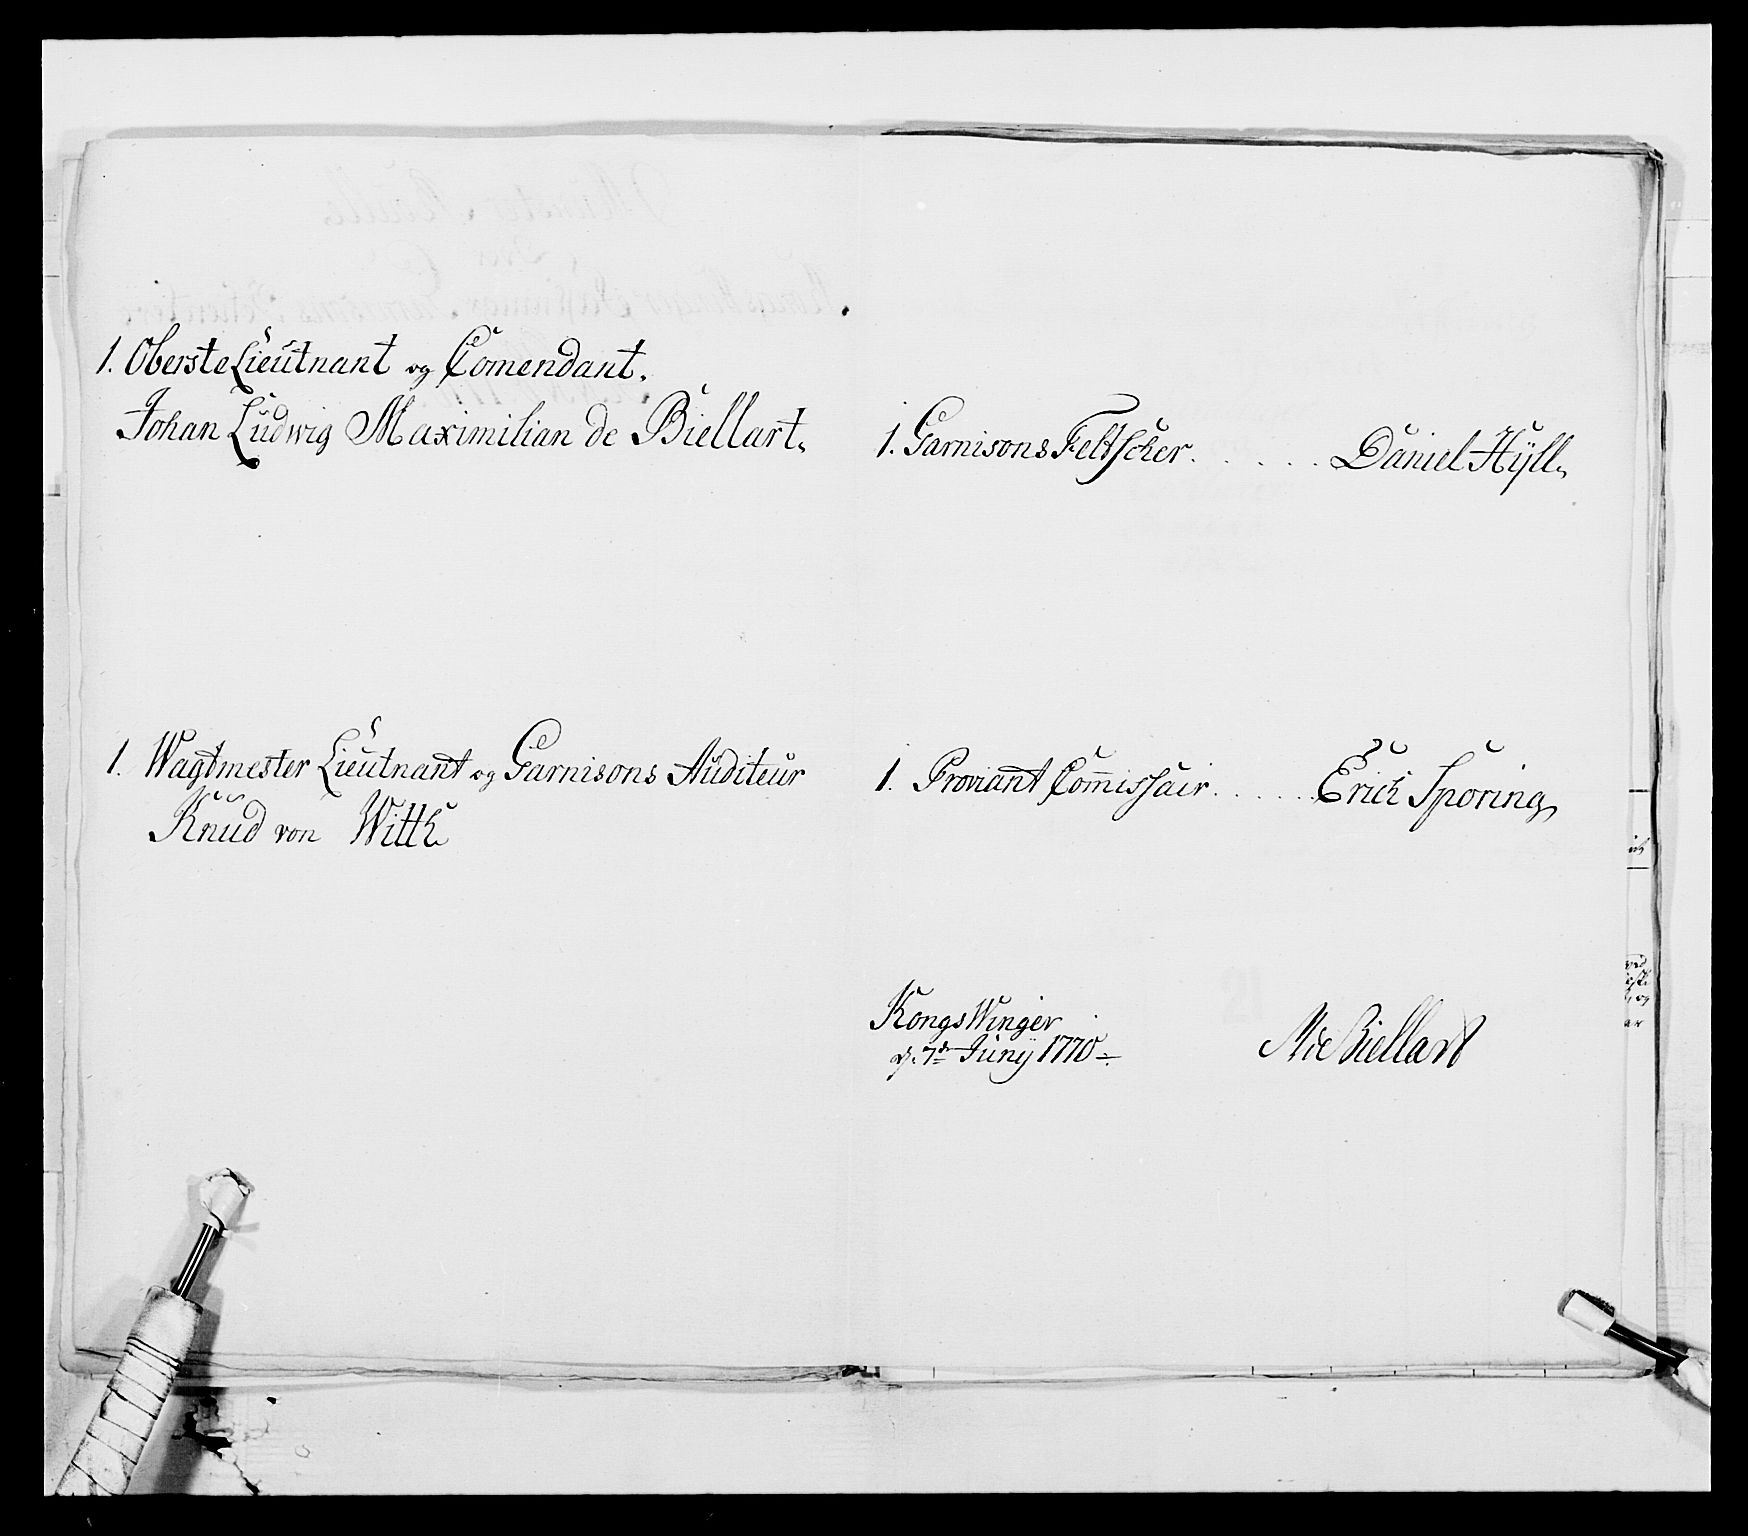 1. Oberste Lieutnant og Comendant.
Johan Ludwig Maximilian de Biellart.
1. Wagtmester Lieutnant og Garnisons Auditeur
Knud von Witth
1. Garnisons Feltscher. . . . . . Daniel Hÿll.
1. Proviant Com̅issair. . . . . . Erich Sporing,
Kongs Winger
d. 7de Junÿ 1770.
Biellart